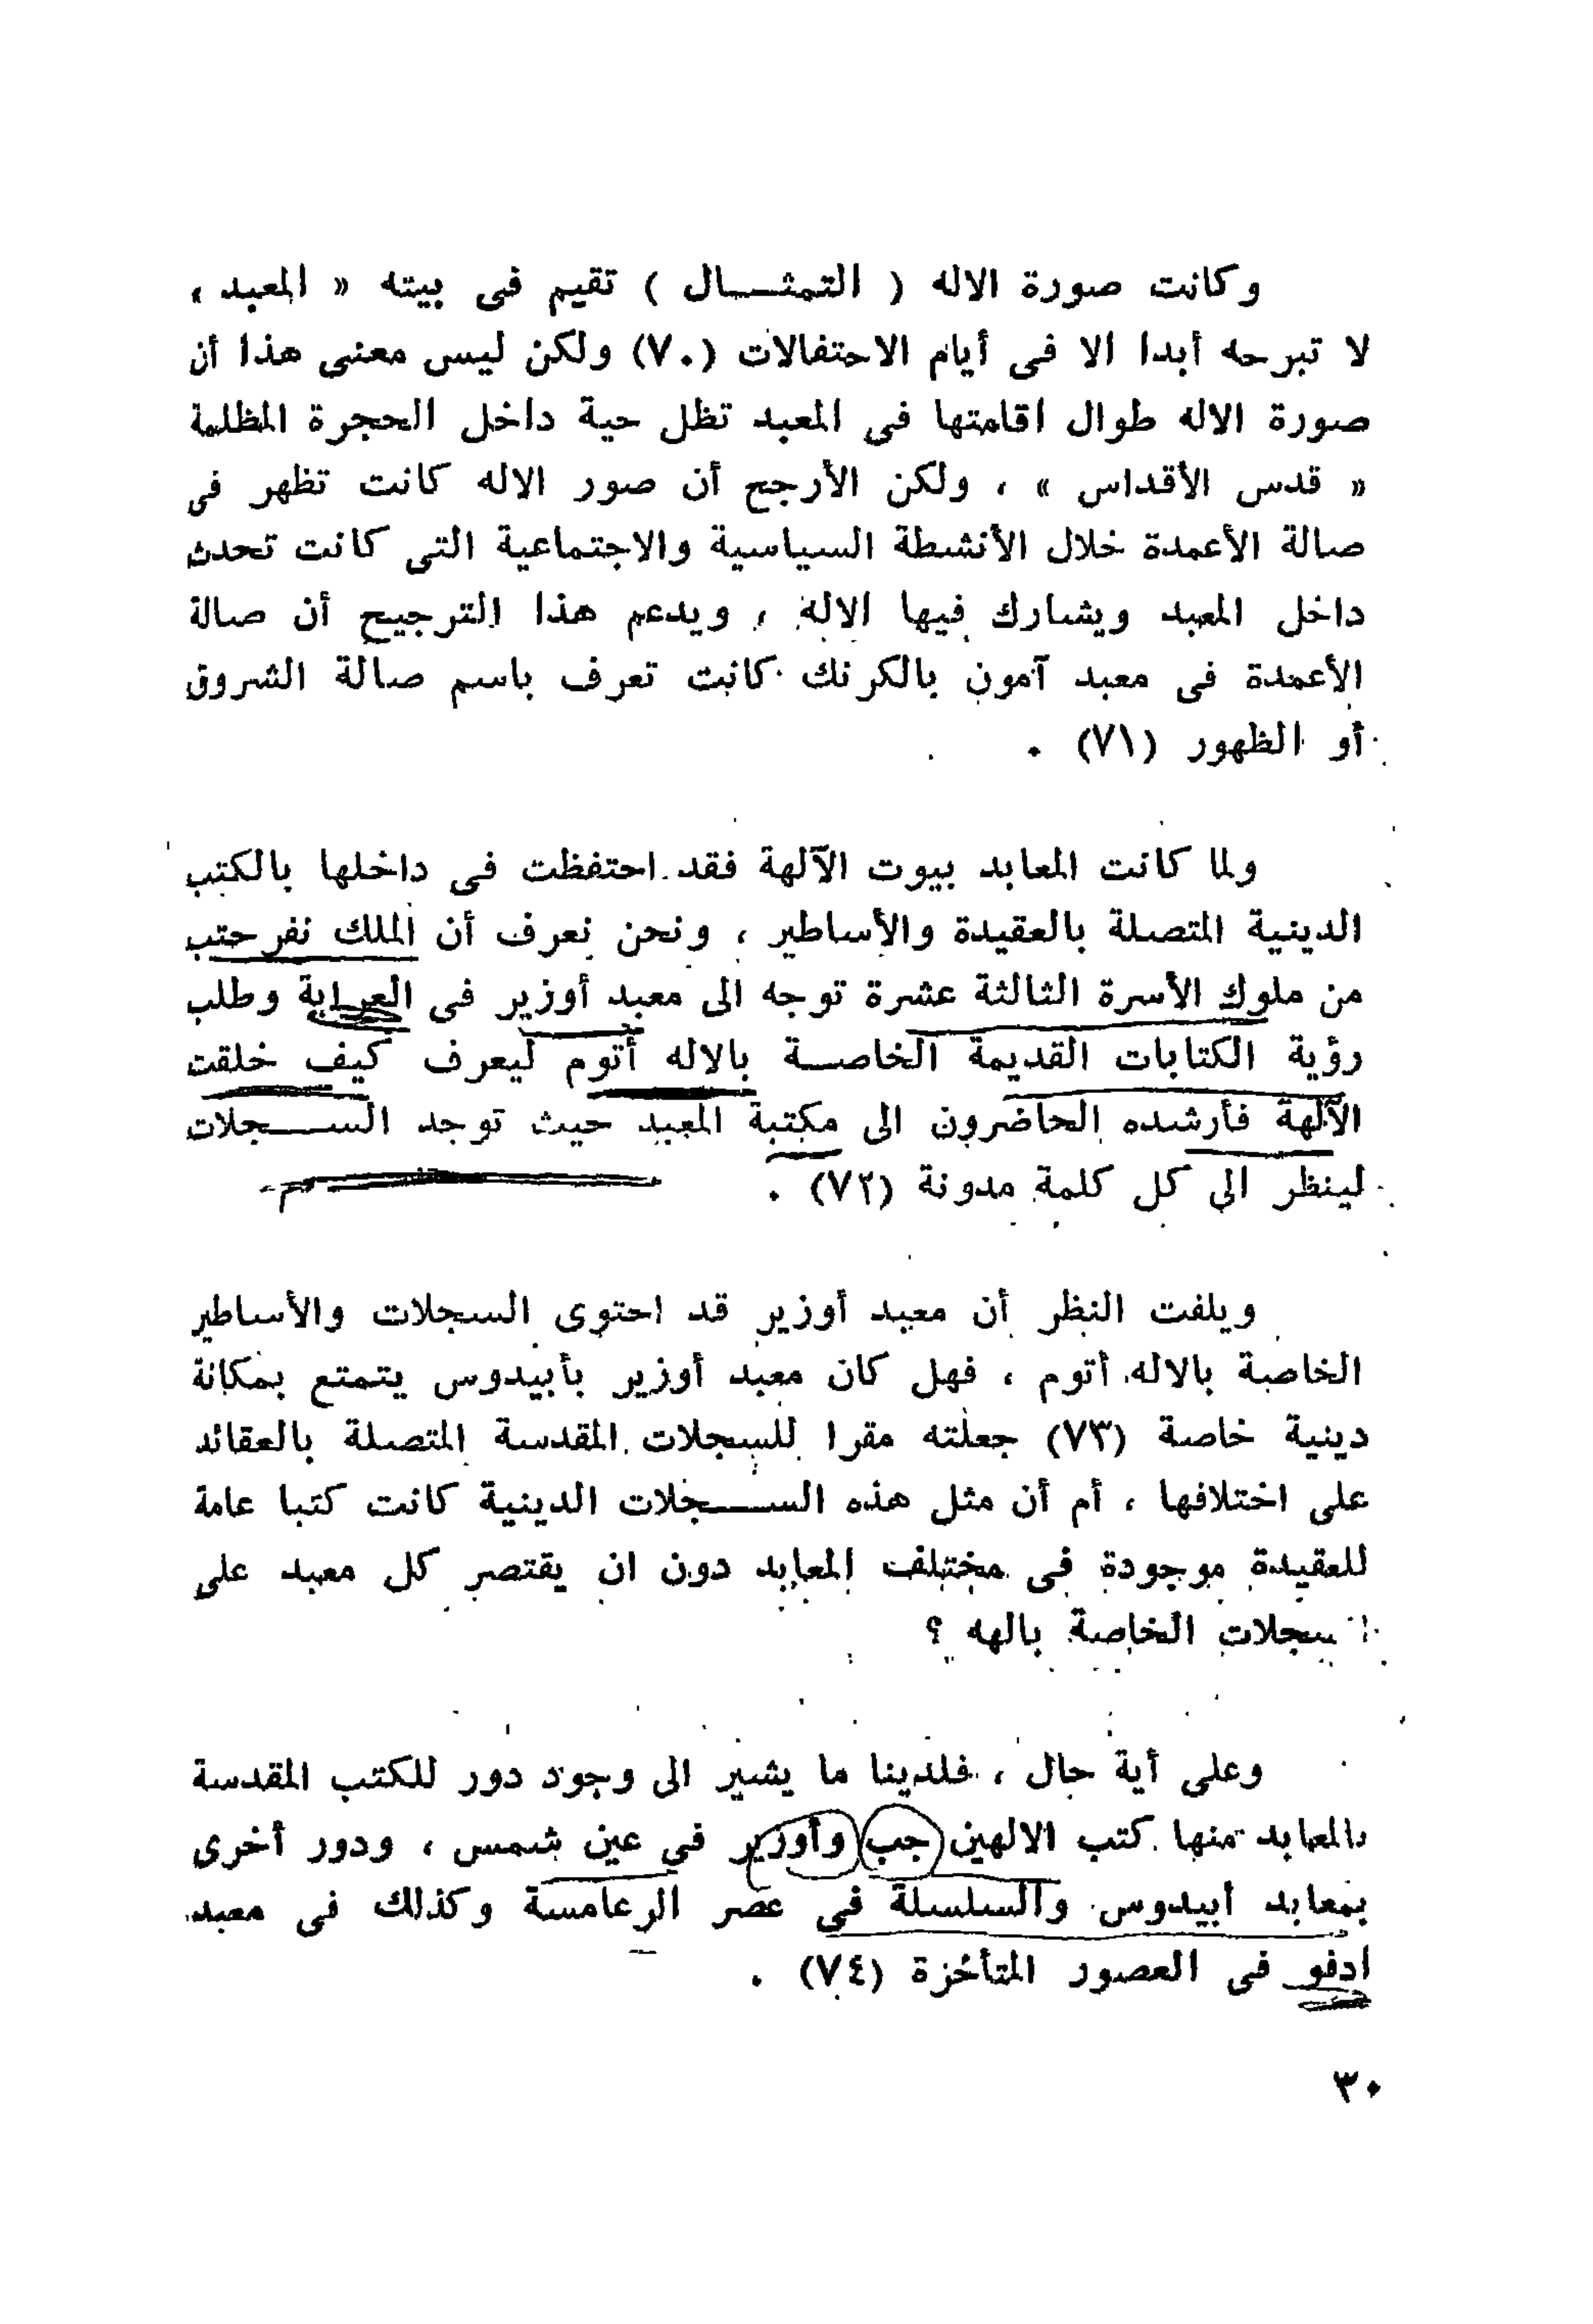 وكانت صورة الاله ( التمثـــال ) تقيم فى بيته « المعبد »
لا تبرحه أبدا الا فى أيام الاحتفالات (٧٠) ولكن ليس معنى هذا أن
صورة الاله طوال اقامتها فى المعبد تظل حية داخل الحجرة المظلمة
« قدس الأقداس » ، ولكن الأرجح أن صور الاله كانت تظهر فى
صالة الأعمدة خلال الأنشطة السياسية والاجتماعية التى كانت تحدث
داخل المعبد ويشارك فيها الاله ، ويدعم هذا الترجيح أن صالة
الأعمدة فى معبد آمون بالكرنك كانت تعرف باسم صالة الشروق
أو الظهور (٧١) .
ولما كانت المعابد بيوت الآلهة فقد احتفظت فى داخلها بالكتب
الدينية المتصلة بالعقيدة والأساطير ، ونحن نعرف أن الملك نفرحتب
من ملوك الأسرة الثالثة عشرة توجه الى معبد أوزير فى العرابة وطلب
رؤية الكتابات القديمة الخاصـــة بالاله أتوم ليعرف كيف خلقت
الآلهة فأرشده الحاضرون الى مكتبة المعبد حيث توجد الســـجلات
لينظر الى كل كلمة مدونة (٧٢) .
ويلفت النظر أن معبد أوزير قد احتوى السجلات والأساطير
الخاصة بالاله أتوم ، فهل كان معبد أوزير بأبيدوس يتمتع بمكانة
دينية خاصة (٧٣) جعلته مقرا للسجلات المقدسة المتصلة بالعقائد
على اختلافها ، أم أن مثل هذه الســـجلات الدينية كانت كتبا عامة
للعقيدة موجودة فى مختلف المعابد دون ان يقتصر كل معبد على
السجلات الخاصة بالهه ؟
وعلى أية حال ، فلدينا ما يشير الى وجود دور للكتب المقدسة
بالمعابد منها كتب الالهين جب وأوزير فى عين شمس ، ودور أخرى
بمعابد أبيدوس والسلسلة فى عصر الرعامسة وكذلك فى معبد
ادفو فى العصور المتأخرة (٧٤) .
٣٠